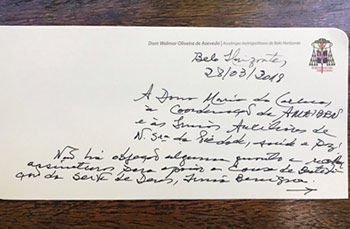 Dom Walmor Oliveira de Azevedo | Arcebispo metropolitano de Belo Horizonte
Belo Horizonte,
28/03/2018
A Dona Maria do Carmo,
à Coordenação da
e às Irmãs Auxiliares de
N. Sra. da Piedade, saúde e paz!
Não há objeção alguma quanto a
assinaturas para apoiar a Causa de
da Serva de Deus, Irmã Benigna.